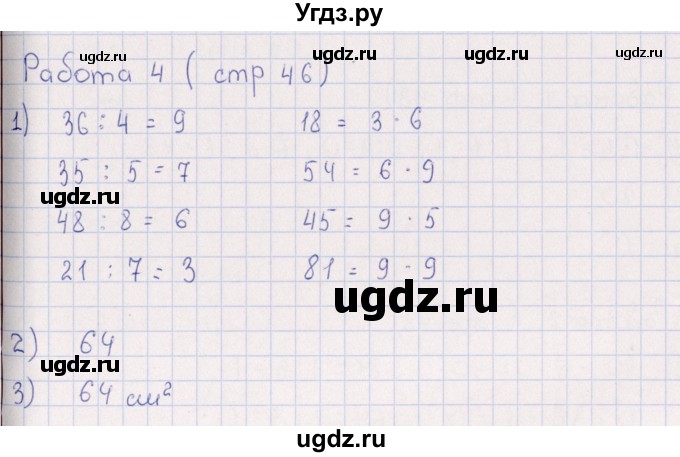 Угдз.ру
ugdz.ru ugdz.ru ugdz.ru ugdz.ru
Работа 4 ( стр 46)
1) 36 : 4 = 9 18 = 3 · 6
35 : 5 = 7 54 = 6 · 9
ugdz.ru
48 : 8 = 6 45 = 9 · 5
21 : 7 = 3 81 = 9 · 9
ugdz.ru
2) 64
ugdz.ru
3) 64 см²
ugdz.ru ugdz.ru
ugdz.ru